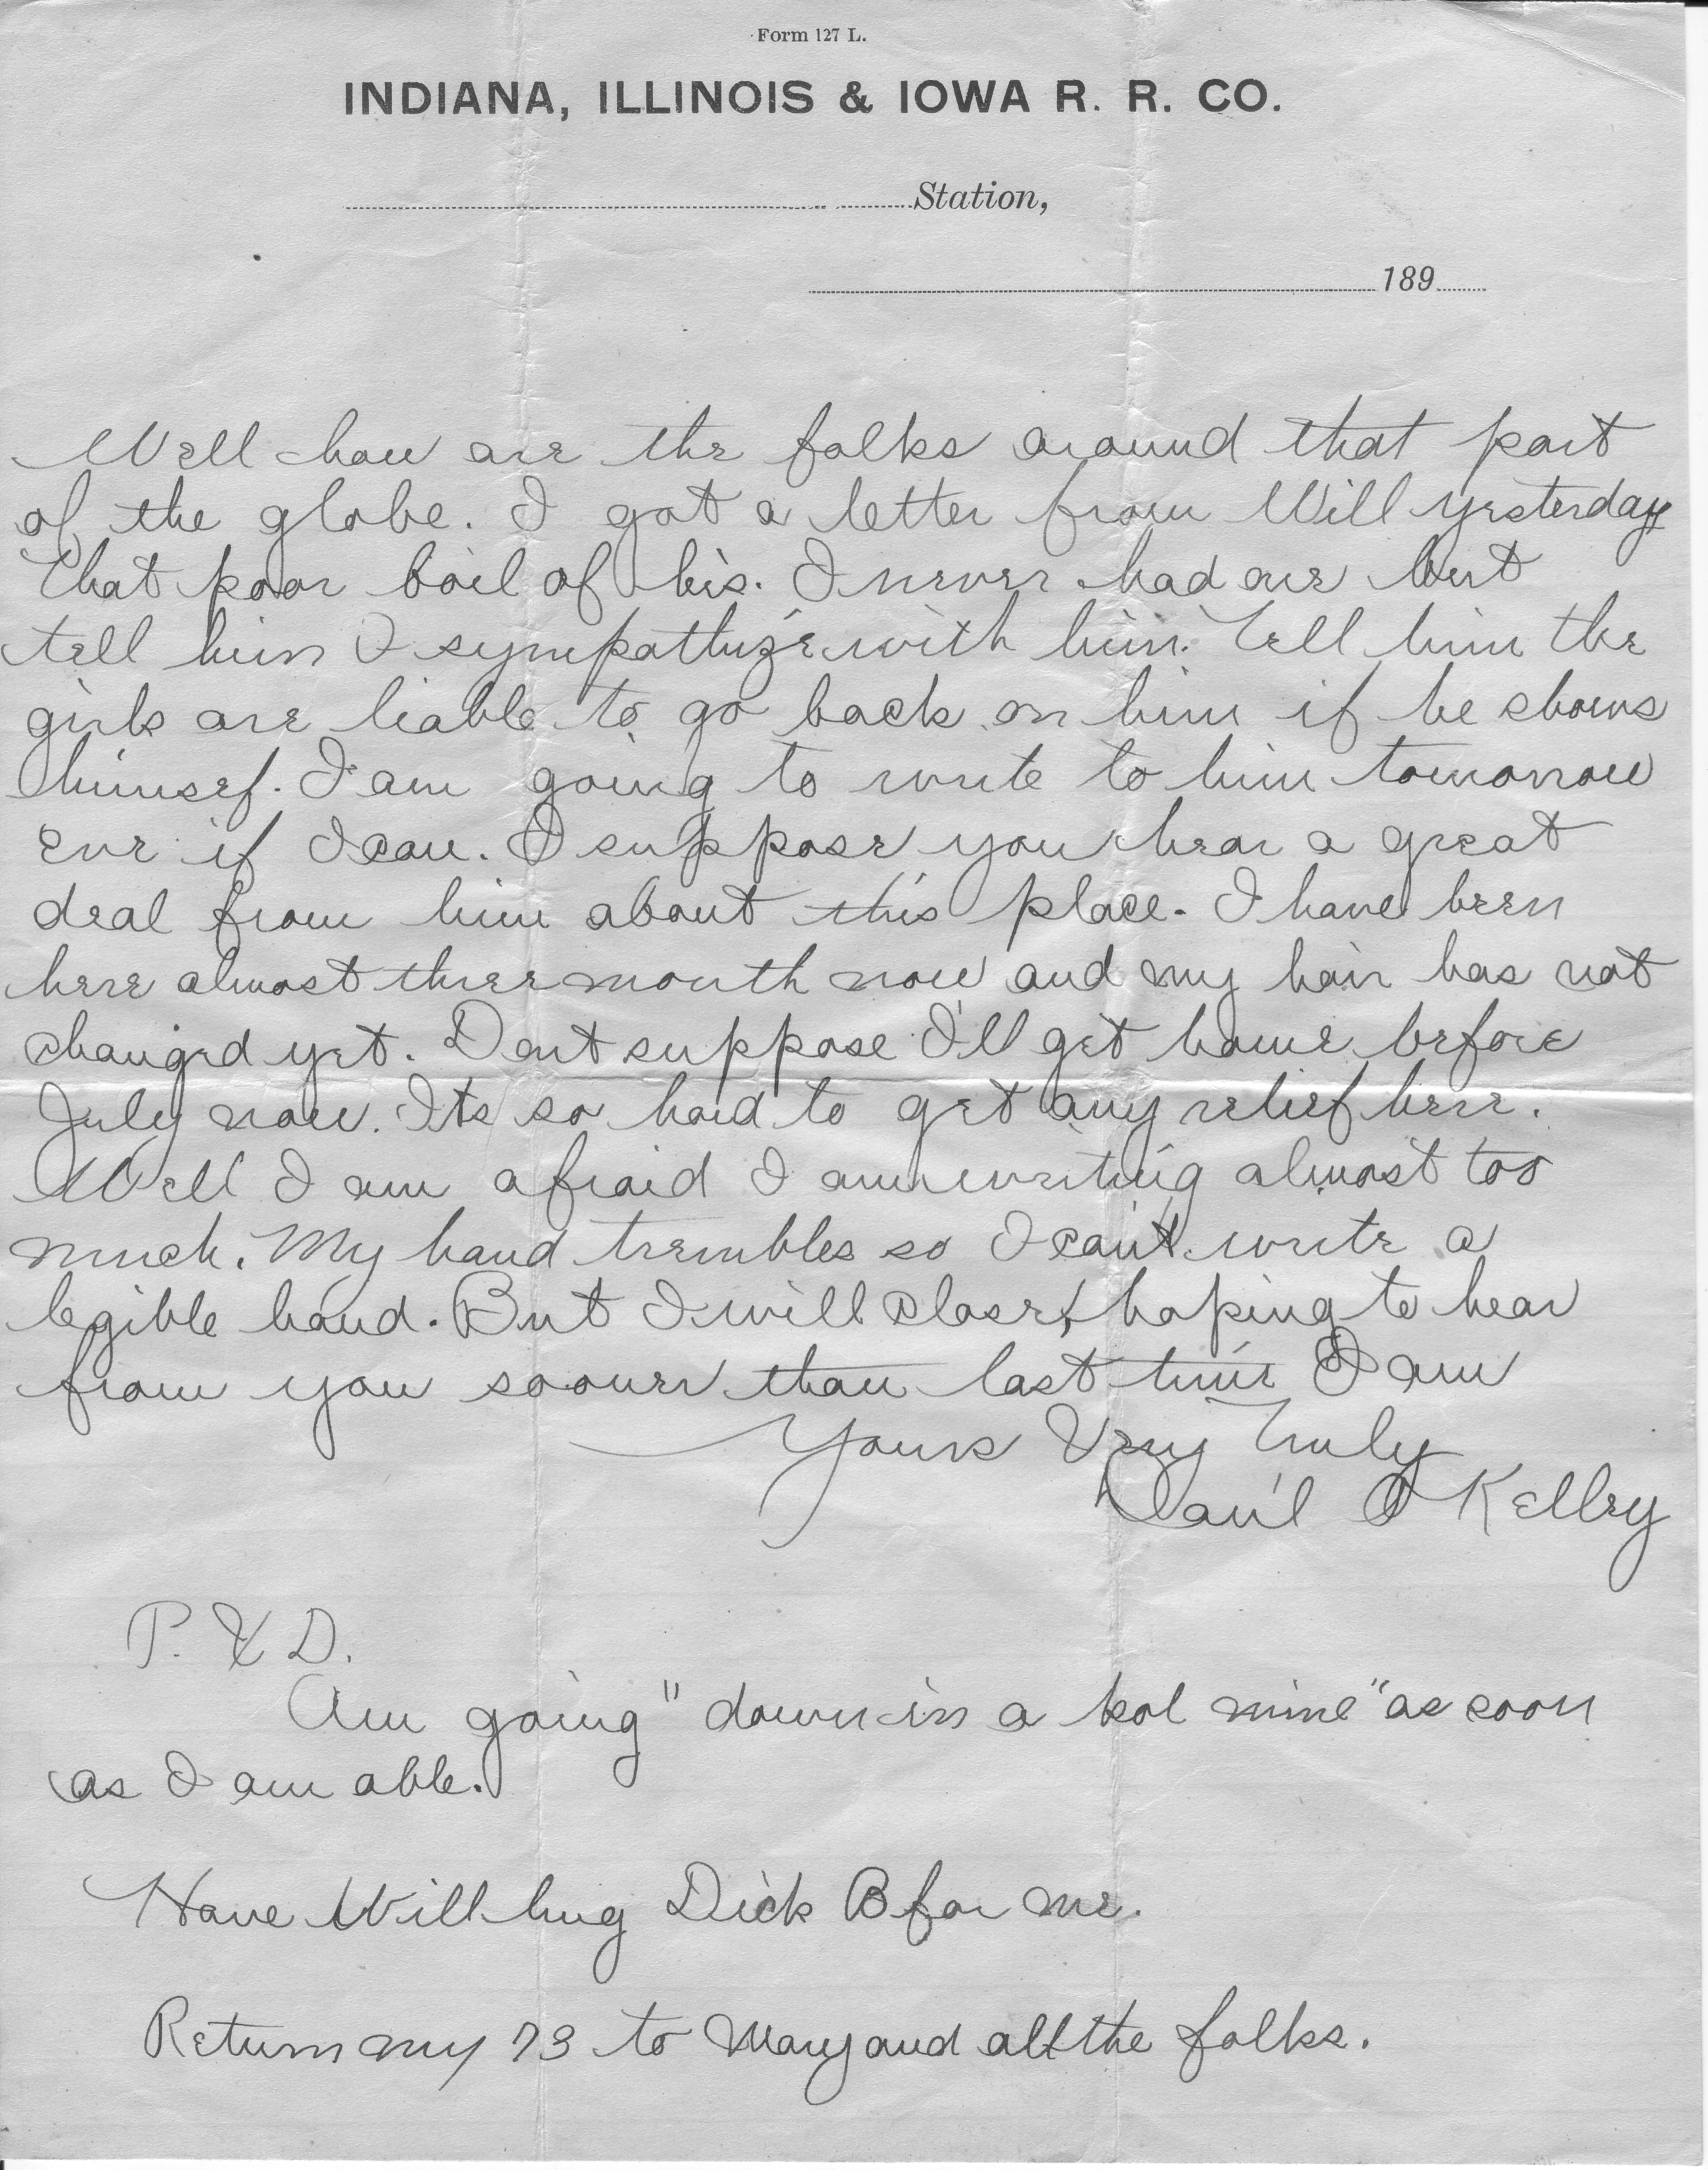 Form 127 L.
INDIANA, ILLINOIS & IOWA R. R. CO.
Station,
189
Well how are the folks around that part
of the globe. I got a letter from Will yesterday
that poor boil of his. I never had one but
tell him I sympathize with him. Tell him the
girls are liable to go back on him if he shows
himsef. I am going to write to him tomorrow
eve if I can. I suppose you hear a great
deal from him about this place. I have been
here almost three month now and my hair has not
changed yet. Dont suppose I'll get home before
July now. Its so hard to get any relief here.
Well I am afraid I am writing almost too
much. My hand trembles so I can't write a
legible hand. But I will close, hoping to hear
from you sooner than last time I am
Yours Very Truly
Dan'l O Kelley
P. & D.
Am going "down in a kol mine" as soon
as I am able.
Have Will hug Dick B for me.
Return my 73 to Mary and all the folks.